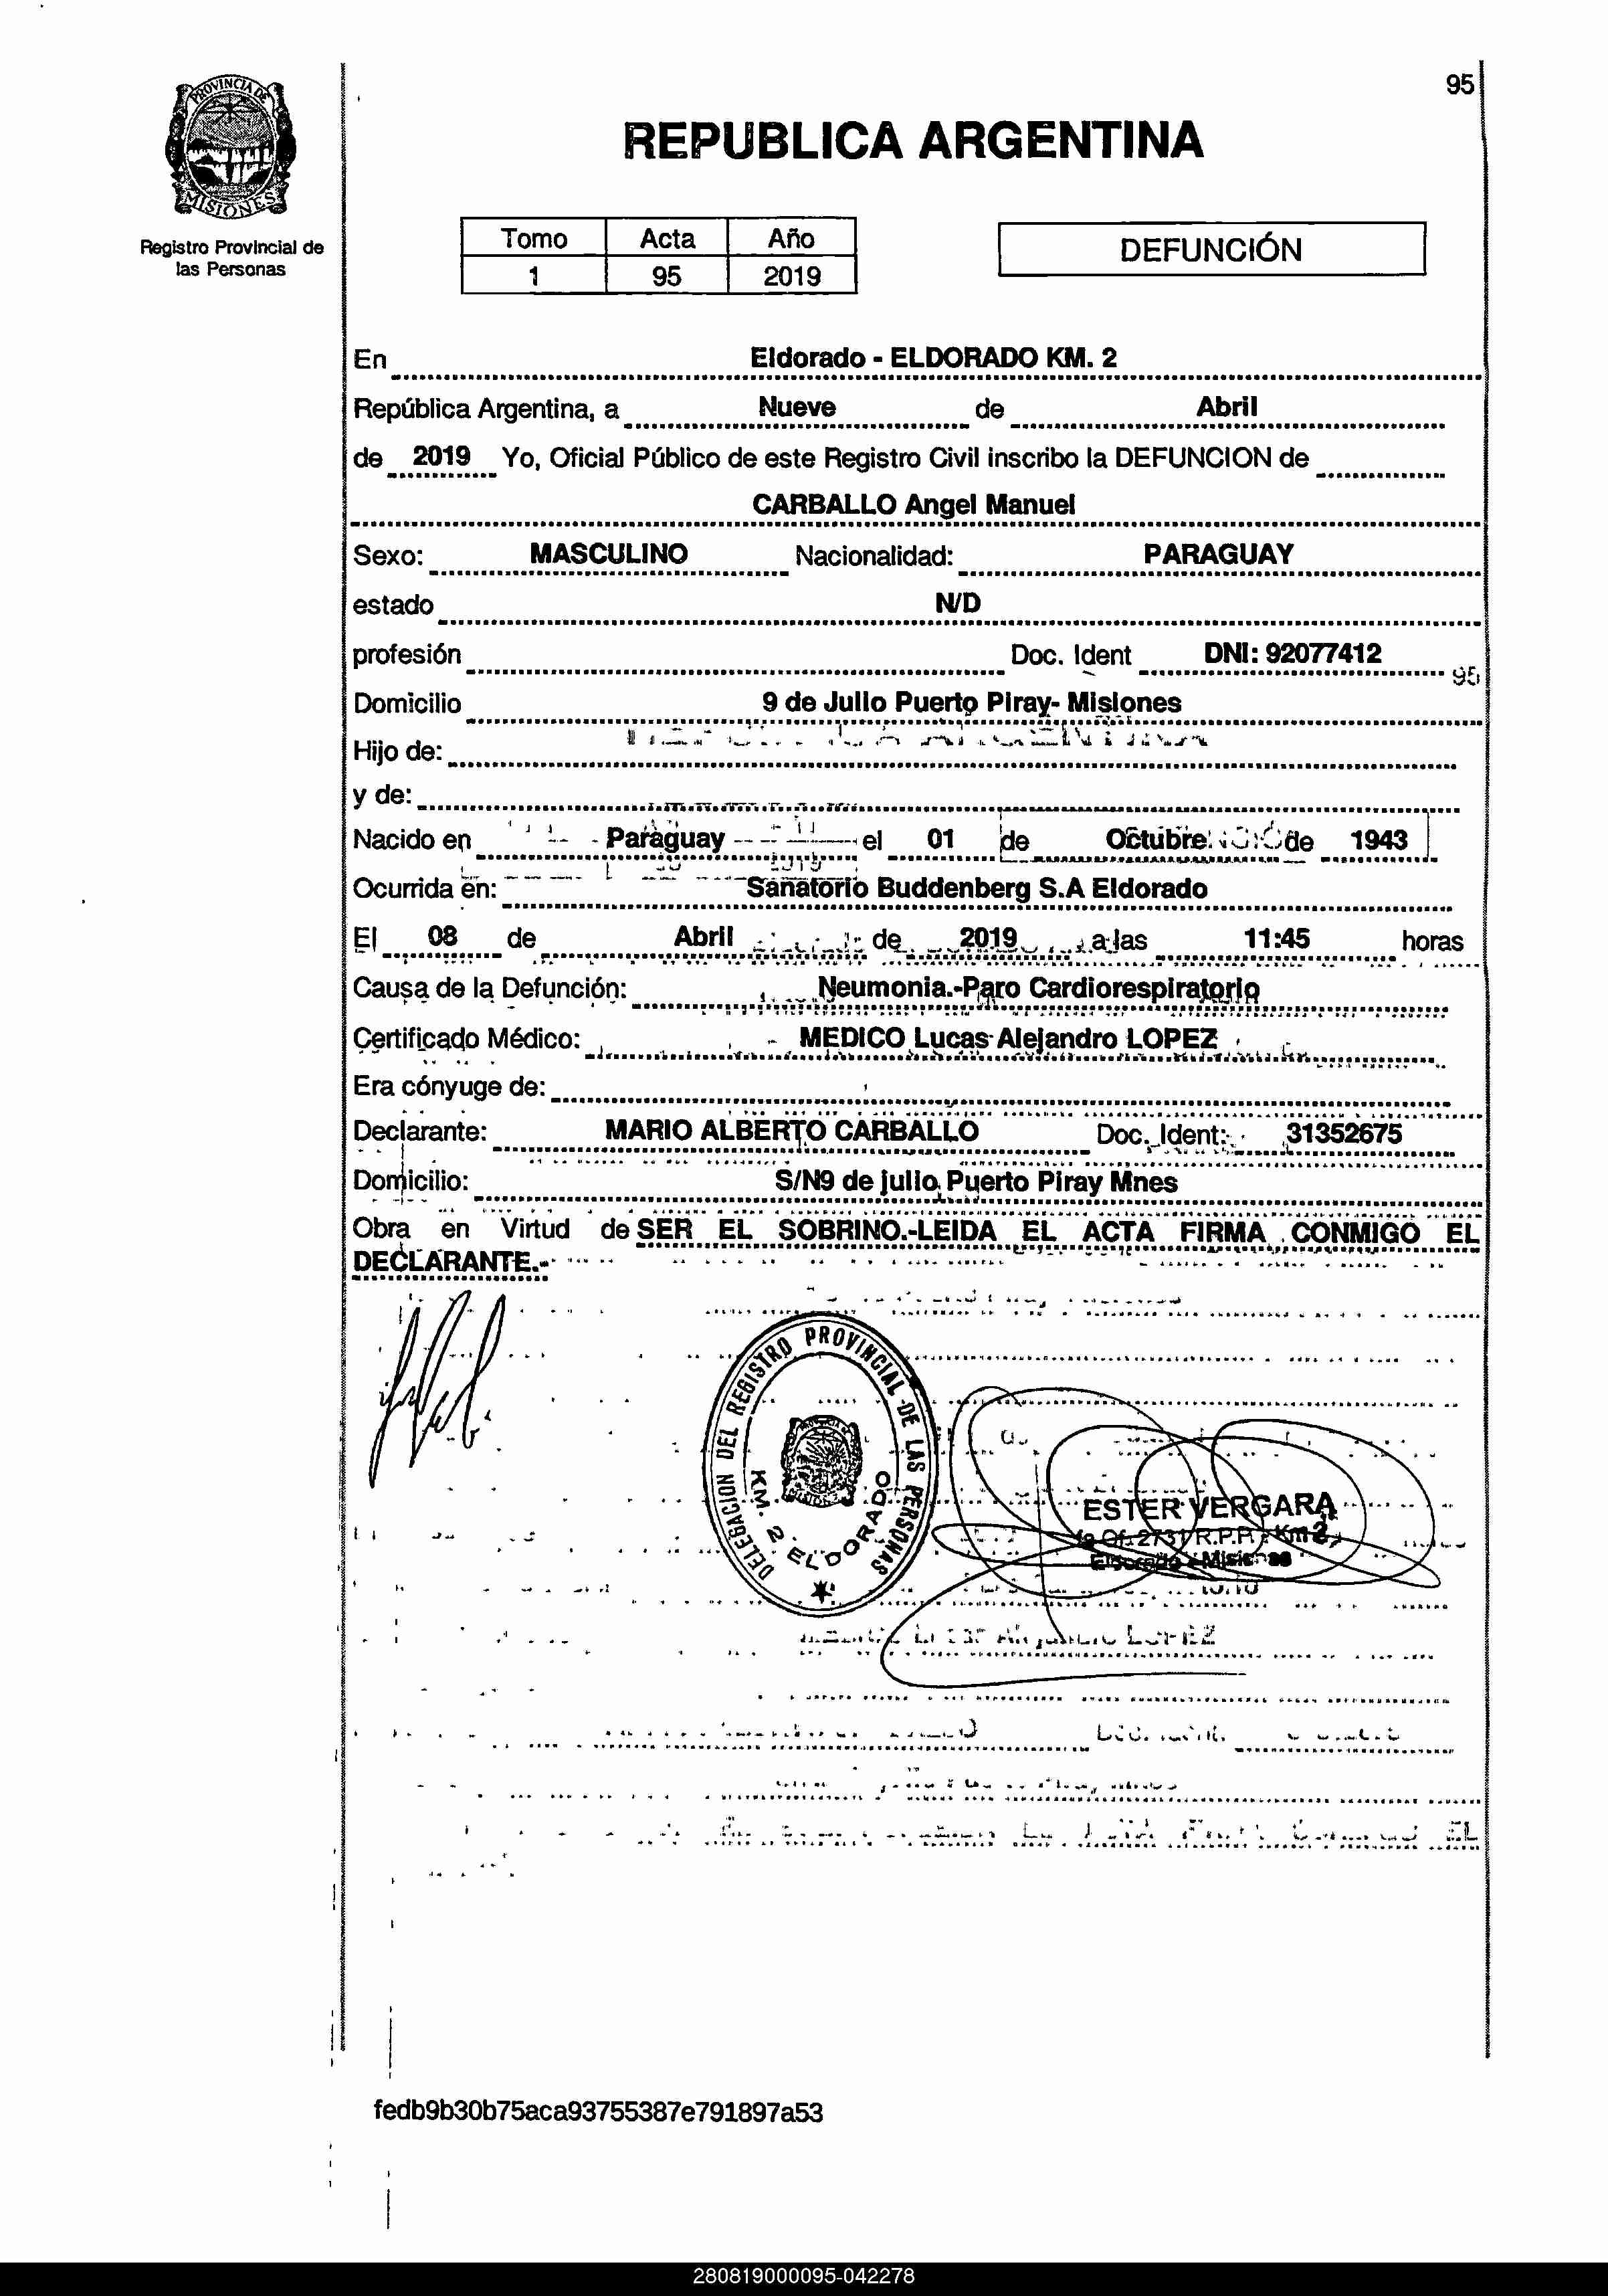 95
PROVINCIA DE
MISIONES
Registro Provincial de
las Personas
REPUBLICA ARGENTINA
Tomo Acta Año
1 95 2019
DEFUNCIÓN
En Eldorado - ELDORADO KM. 2
República Argentina, a Nueve de Abril
de 2019 Yo, Oficial Público de este Registro Civil inscribo la DEFUNCION de
CARBALLO Angel Manuel
Sexo: MASCULINO Nacionalidad: PARAGUAY
estado N/D
profesión Doc. Ident DNI: 92077412
95
Domicilio 9 de Julio Puerto Piray- Misiones
Hijo de:
y de:
Nacido en Paraguay el 01 de Octubre de 1943
Ocurrida en: Sanatorio Buddenberg S.A Eldorado
El 08 de Abril de 2019 a las 11:45 horas
Causa de la Defunción: Neumonia.-Paro Cardiorespiratorio
Certificado Médico: MEDICO Lucas Alejandro LOPEZ
Era cónyuge de:
Declarante: MARIO ALBERTO CARBALLO Doc. Ident: 31352675
Domicilio: S/N9 de julio Puerto Piray Mnes
Obra en Virtud de SER EL SOBRINO.-LEIDA EL ACTA FIRMA CONMIGO EL
DECLARANTE.-
DELEGACION DEL REGISTRO PROVINCIAL DE LAS PERSONAS
KM. 2 ELDORADO
ESTER VERGARA
Of. 2731 R.P.P. Km 2,
Eldorado - Misiones
fedb9b30b75aca93755387e791897a53
280819000095-042278